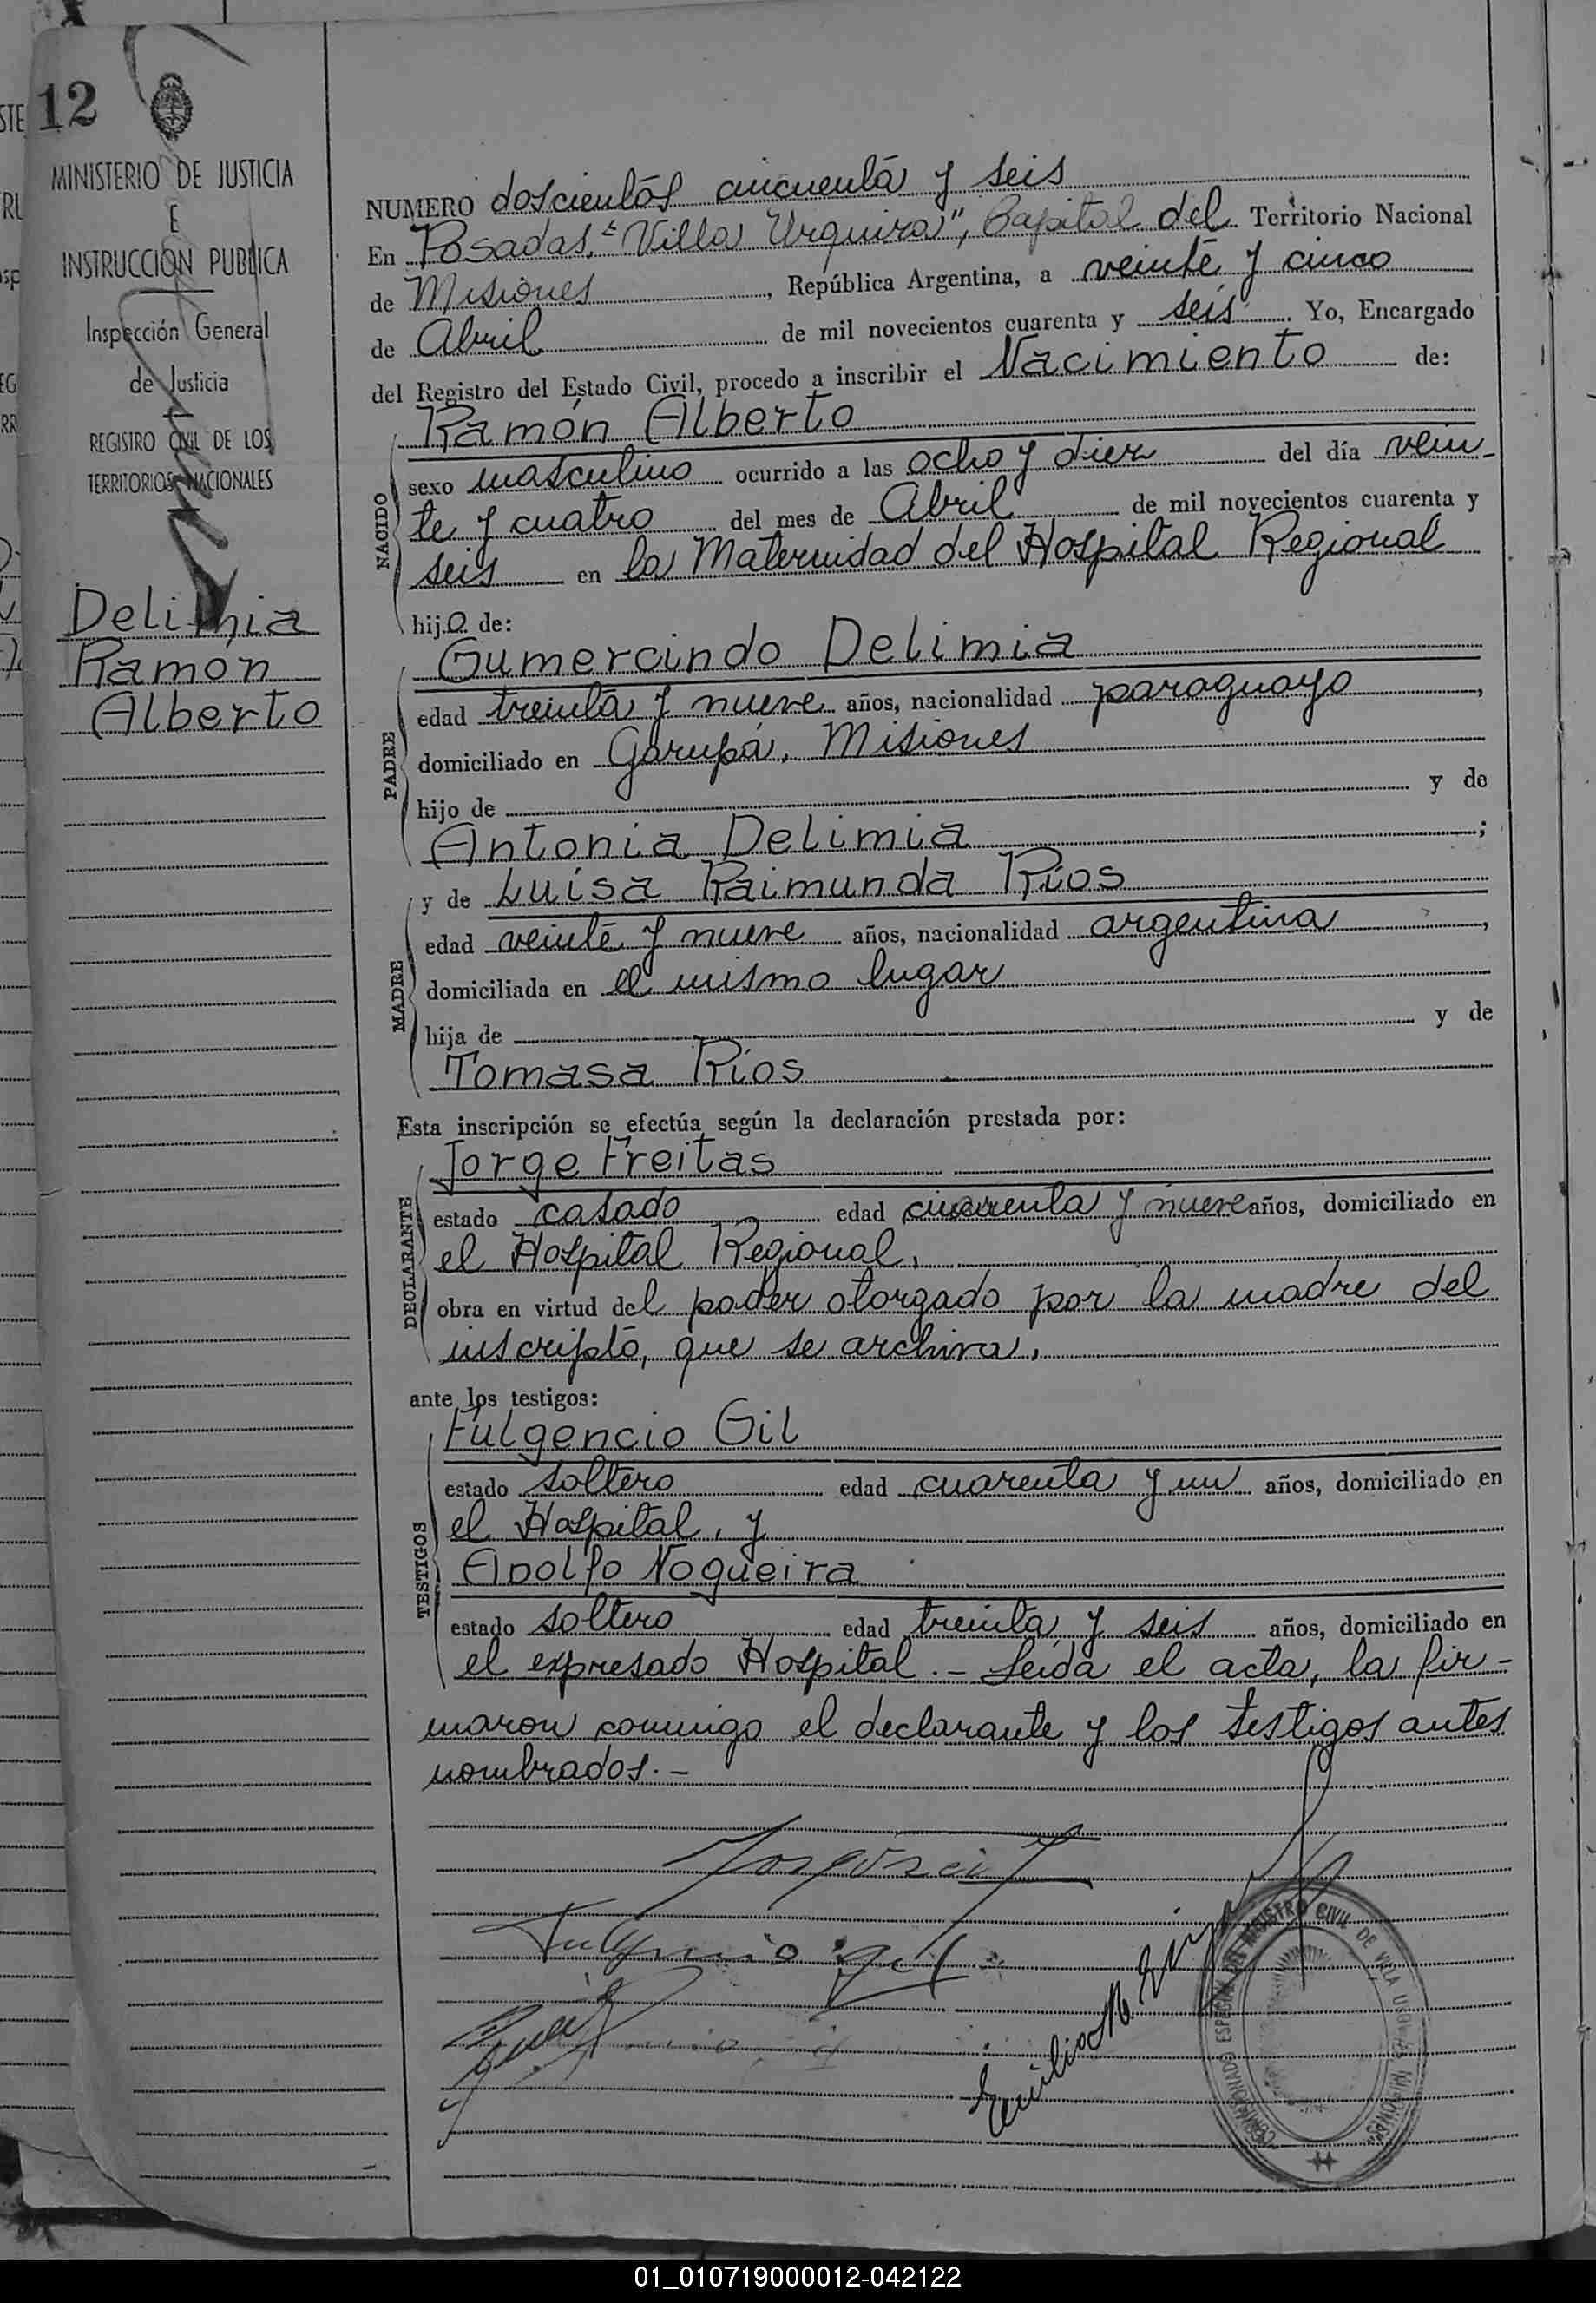 12
MINISTERIO DE JUSTICIA
E
INSTRUCCION PUBLICA
Inspección General
de Justicia
REGISTRO CIVIL DE LOS
TERRITORIOS NACIONALES
Delimia
Ramón
Alberto
NUMERO doscientos cincuenta y seis
En Posadas, "Villa Urquiza", Capital del Territorio Nacional
de Misiones, República Argentina, a veinte y cinco
de Abril de mil novecientos cuarenta y seis. Yo, Encargado
del Registro del Estado Civil, procedo a inscribir el Nacimiento de:
Ramón Alberto
NACIDO
sexo masculino ocurrido a las ocho y diez del día vein-
te y cuatro del mes de Abril de mil novecientos cuarenta y
seis en la Maternidad del Hospital Regional
hijo de:
Gumercindo Delimia
PADRE
edad treinta y nueve años, nacionalidad paraguayo,
domiciliado en Garupá, Misiones
hijo de y de
Antonia Delimia;
y de Luisa Raimunda Ríos
MADRE
edad veinte y nueve años, nacionalidad argentina,
domiciliada en el mismo lugar
hija de y de
Tomasa Ríos
Esta inscripción se efectúa según la declaración prestada por:
Jorge Freitas
DECLARANTE
estado casado edad y nueve años, domiciliado en
el Hospital Regional,
obra en virtud del poder otorgado por la madre del
inscripto, que se archiva,
ante los testigos:
Fulgencio Gil
TESTIGOS
estado soltero edad cuarenta y un años, domiciliado en
el Hospital, y
Adolfo Nogueira
estado soltero edad treinta y seis años, domiciliado en
el expresado Hospital.- Leída el acta, la fir-
maron conmigo el declarante y los testigos antes
nombrados.-
Fulgencio Gil
Emilio
REGISTRO CIVIL DE VILLA
01_010719000012-042122